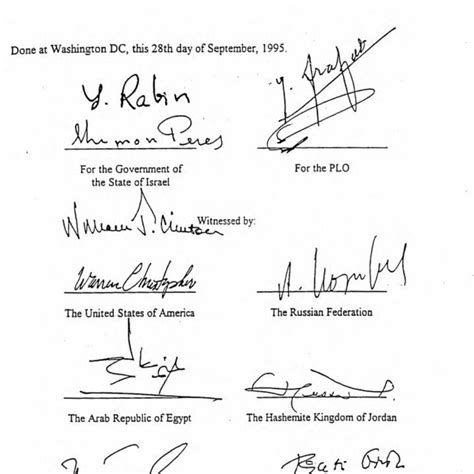 Done at Washington DC, this 28th day of September, 1995.
Y. Rabin
Y. Arafat
Shimon Peres
For the Government of
the State of Israel
For the PLO
William J. Clinton
Witnessed by:
Warren Christopher
The United States of America
The Russian Federation
The Arab Republic of Egypt
The Hashemite Kingdom of Jordan